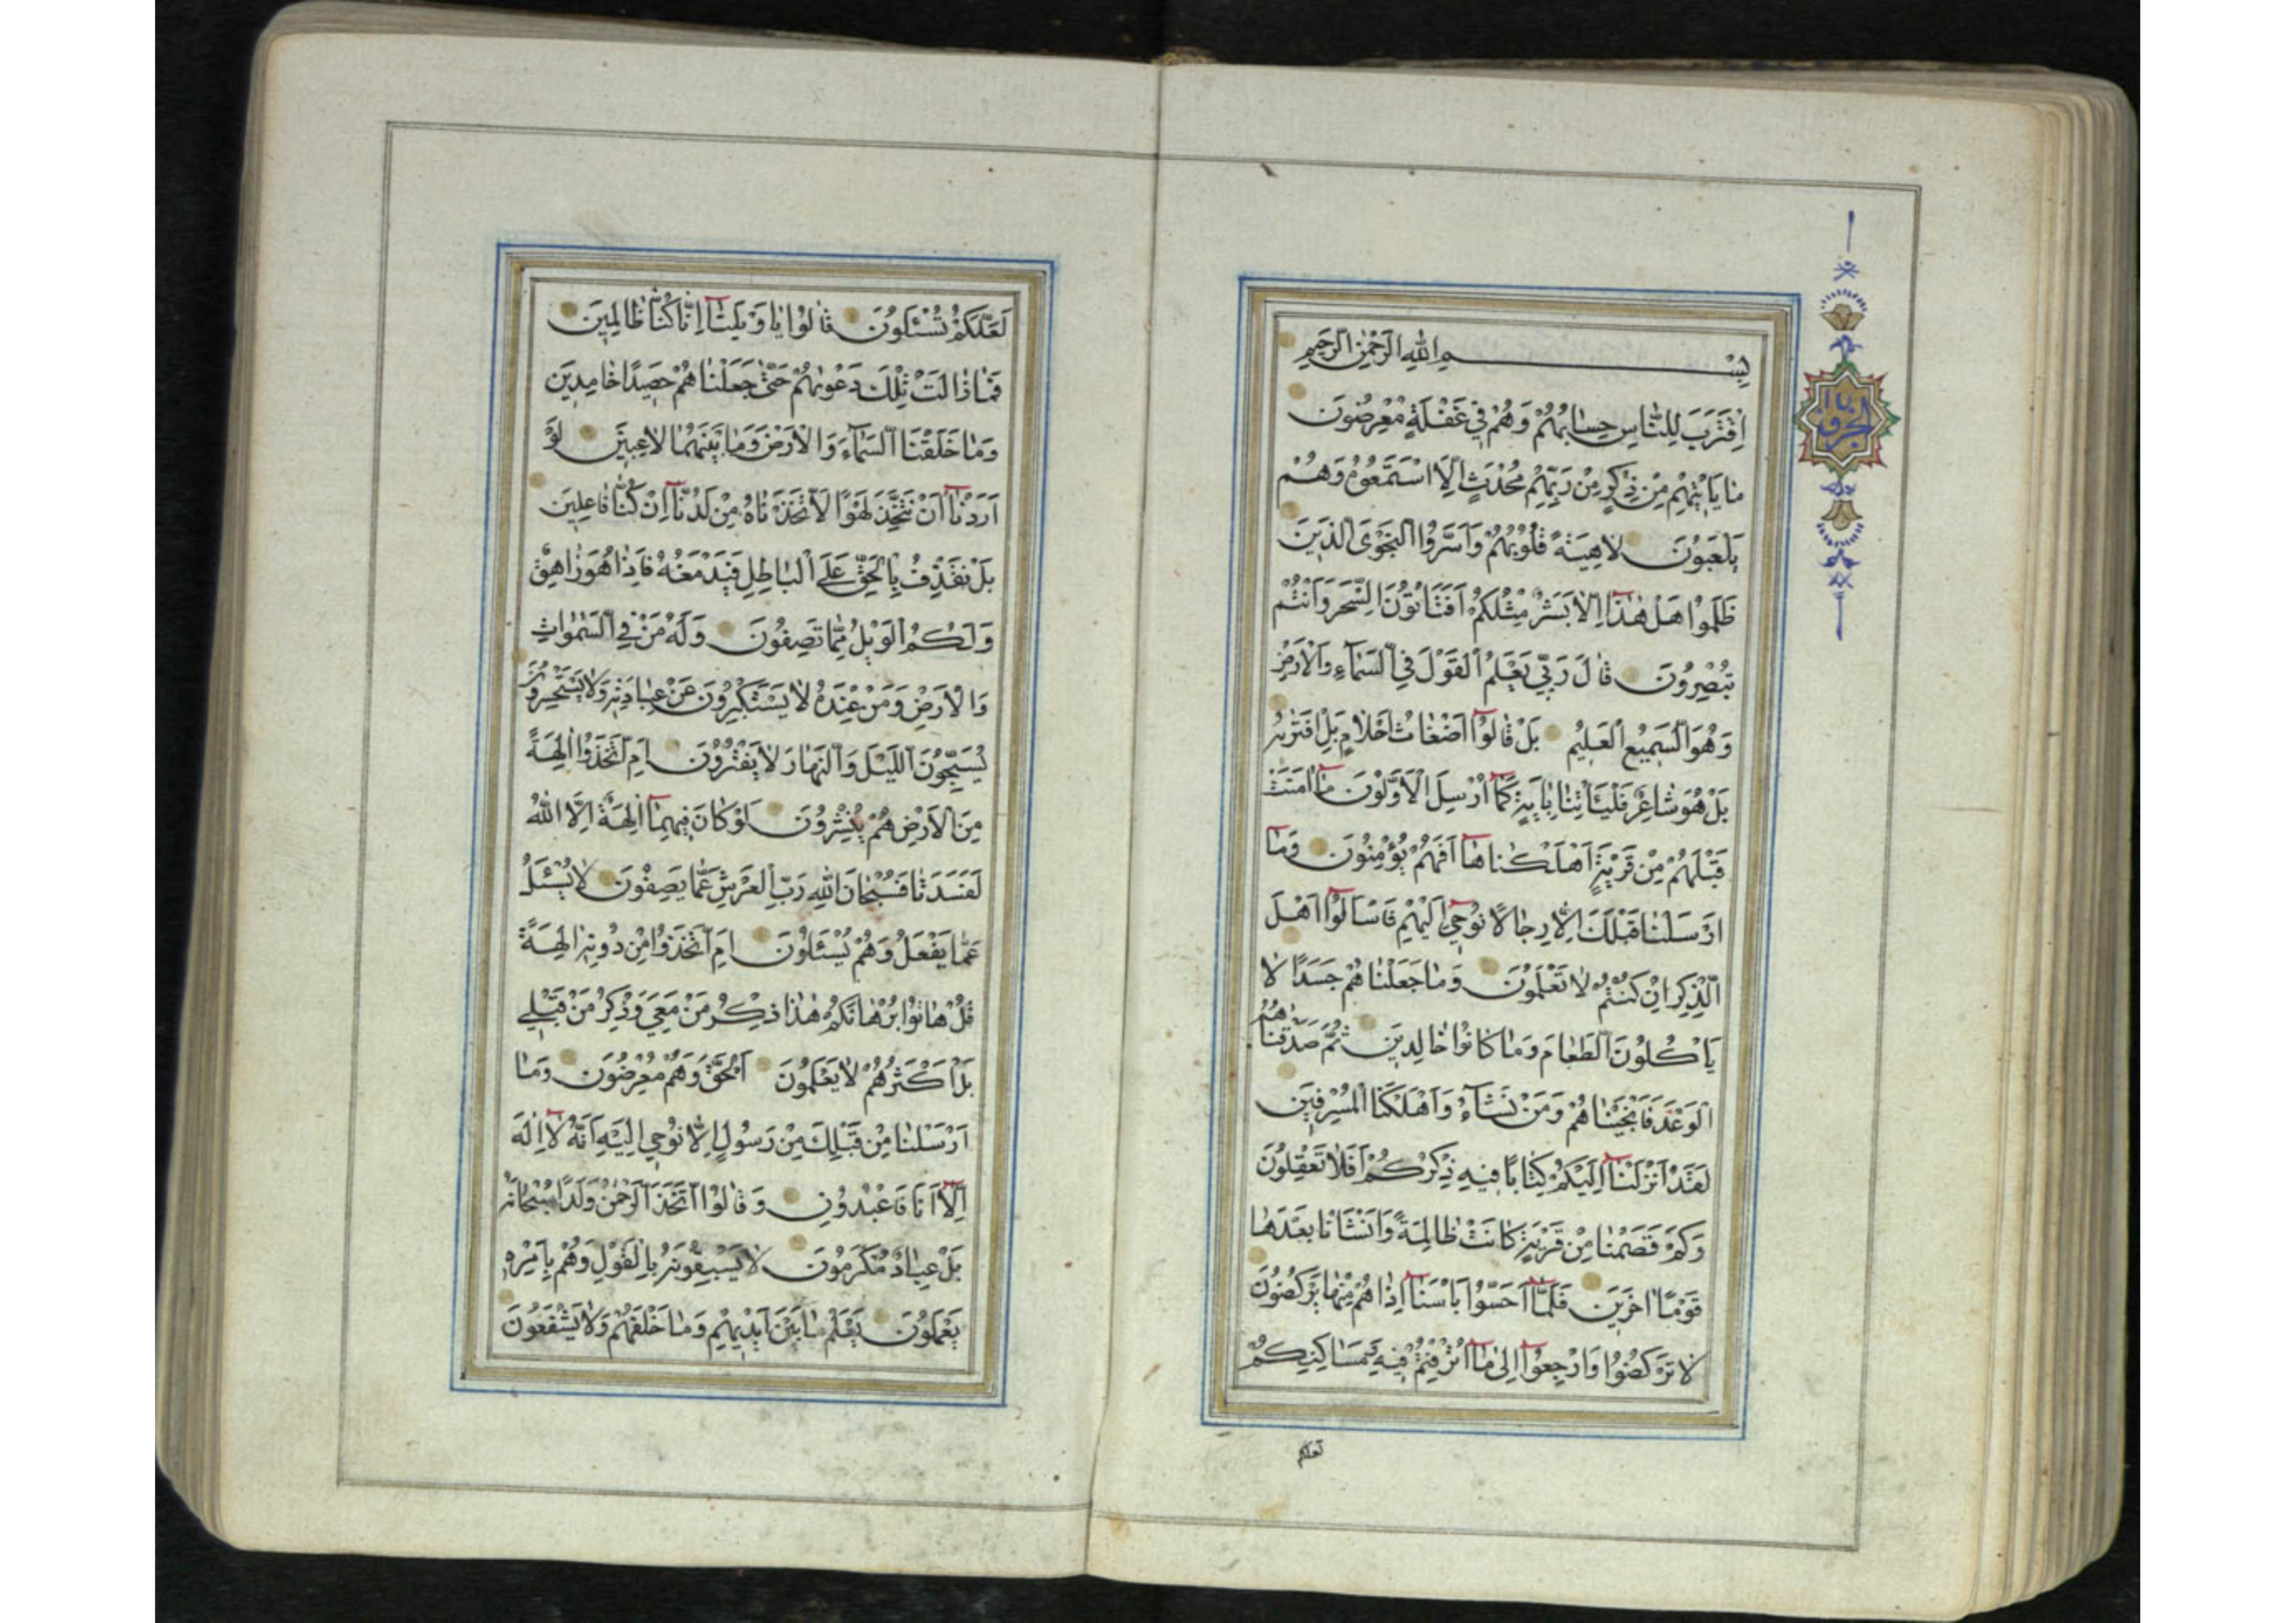 بِسْمِ اللهِ الرَّحْمٰنِ الرَّحِيمِ
اِقْتَرَبَ لِلنَّاسِ حِسَابُهُمْ وَهُمْ فِي غَفْلَةٍ مُعْرِضُونَ
مَا يَأْتِيهِمْ مِنْ ذِكْرٍ مِنْ رَبِّهِمْ مُحْدَثٍ اِلَّا اسْتَمَعُوهُ وَهُمْ
يَلْعَبُونَ لَاهِيَةً قُلُوبُهُمْ وَاَسَرُّوا النَّجْوَى الَّذِينَ
ظَلَمُوا هَلْ هٰذَا اِلَّا بَشَرٌ مِثْلُكُمْ اَفَتَأْتُونَ السِّحْرَ وَاَنْتُمْ
تُبْصِرُونَ قَالَ رَبِّي يَعْلَمُ الْقَوْلَ فِي السَّمَآءِ وَالْاَرْضِ
وَهُوَ السَّمِيعُ الْعَلِيمُ بَلْ قَالُوٓا اَضْغَاثُ اَحْلَامٍ بَلِ افْتَرٰيهُ
بَلْ هُوَ شَاعِرٌ فَلْيَأْتِنَا بِاٰيَةٍ كَمَآ اُرْسِلَ الْاَوَّلُونَ مَآ اٰمَنَتْ
قَبْلَهُمْ مِنْ قَرْيَةٍ اَهْلَكْنَاهَآ اَفَهُمْ يُؤْمِنُونَ وَمَآ
اَرْسَلْنَا قَبْلَكَ اِلَّا رِجَالًا نُوحِٓي اِلَيْهِمْ فَاسْاَلُوٓا اَهْلَ
الذِّكْرِ اِنْ كُنْتُمْ لَا تَعْلَمُونَ وَمَا جَعَلْنَاهُمْ جَسَدًا لَا
يَأْكُلُونَ الطَّعَامَ وَمَا كَانُوا خَالِدِينَ ثُمَّ صَدَقْنَاهُمُ
الْوَعْدَ فَاَنْجَيْنَاهُمْ وَمَنْ نَشَآءُ وَاَهْلَكْنَا الْمُسْرِفِينَ
لَقَدْ اَنْزَلْنَآ اِلَيْكُمْ كِتَابًا فِيهِ ذِكْرُكُمْ اَفَلَا تَعْقِلُونَ
وَكَمْ قَصَمْنَا مِنْ قَرْيَةٍ كَانَتْ ظَالِمَةً وَاَنْشَأْنَا بَعْدَهَا
قَوْمًا اٰخَرِينَ فَلَمَّآ اَحَسُّوا بَأْسَنَآ اِذَا هُمْ مِنْهَا يَرْكُضُونَ
لَا تَرْكُضُوا وَارْجِعُوٓا اِلٰى مَآ اُتْرِفْتُمْ فِيهِ وَمَسَاكِنِكُمْ
لعلكم
لَعَلَّكُمْ تُسْئَلُونَ قَالُوا يَا وَيْلَنَآ اِنَّا كُنَّا ظَالِمِينَ
فَمَا زَالَتْ تِلْكَ دَعْوٰيهُمْ حَتّٰى جَعَلْنَاهُمْ حَصِيدًا خَامِدِينَ
وَمَا خَلَقْنَا السَّمَآءَ وَالْاَرْضَ وَمَا بَيْنَهُمَا لَاعِبِينَ لَوْ
اَرَدْنَآ اَنْ نَتَّخِذَ لَهْوًا لَاتَّخَذْنَاهُ مِنْ لَدُنَّآ اِنْ كُنَّا فَاعِلِينَ
بَلْ نَقْذِفُ بِالْحَقِّ عَلَى الْبَاطِلِ فَيَدْمَغُهُ فَاِذَا هُوَ زَاهِقٌ
وَلَكُمُ الْوَيْلُ مِمَّا تَصِفُونَ وَلَهُ مَنْ فِي السَّمٰوَاتِ
وَالْاَرْضِ وَمَنْ عِنْدَهُ لَا يَسْتَكْبِرُونَ عَنْ عِبَادَتِهِ وَلَا يَسْتَحْسِرُونَ
يُسَبِّحُونَ اللَّيْلَ وَالنَّهَارَ لَا يَفْتُرُونَ اَمِ اتَّخَذُوٓا اٰلِهَةً
مِنَ الْاَرْضِ هُمْ يُنْشِرُونَ لَوْ كَانَ فِيهِمَآ اٰلِهَةٌ اِلَّا اللهُ
لَفَسَدَتَا فَسُبْحَانَ اللهِ رَبِّ الْعَرْشِ عَمَّا يَصِفُونَ لَا يُسْئَلُ
عَمَّا يَفْعَلُ وَهُمْ يُسْئَلُونَ اَمِ اتَّخَذُوا مِنْ دُونِهِ اٰلِهَةً
قُلْ هَاتُوا بُرْهَانَكُمْ هٰذَا ذِكْرُ مَنْ مَعِيَ وَذِكْرُ مَنْ قَبْلِي
بَلْ اَكْثَرُهُمْ لَا يَعْلَمُونَ الْحَقَّ وَهُمْ مُعْرِضُونَ وَمَا
اَرْسَلْنَا مِنْ قَبْلِكَ مِنْ رَسُولٍ اِلَّا نُوحِي اِلَيْهِ اَنَّهُ لَآ اِلٰهَ
اِلَّآ اَنَا فَاعْبُدُونِ وَقَالُوا اتَّخَذَ الرَّحْمٰنُ وَلَدًا سُبْحَانَهُ
بَلْ عِبَادٌ مُكْرَمُونَ لَا يَسْبِقُونَهُ بِالْقَوْلِ وَهُمْ بِاَمْرِهِ
يَعْمَلُونَ يَعْلَمُ مَا بَيْنَ اَيْدِيهِمْ وَمَا خَلْفَهُمْ وَلَا يَشْفَعُونَ